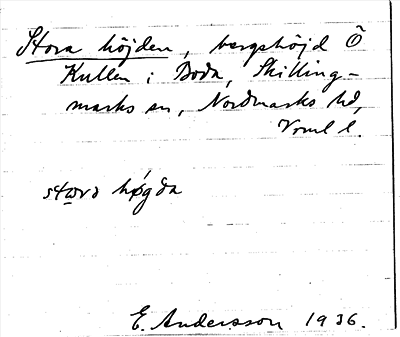 Stora höjden, bergshöjd Ö
Kullen i Boda, Skilling-
marks sn, Nordmarks hd,
Vrml l.
stɷrə høgda
E. Andersson 1936.